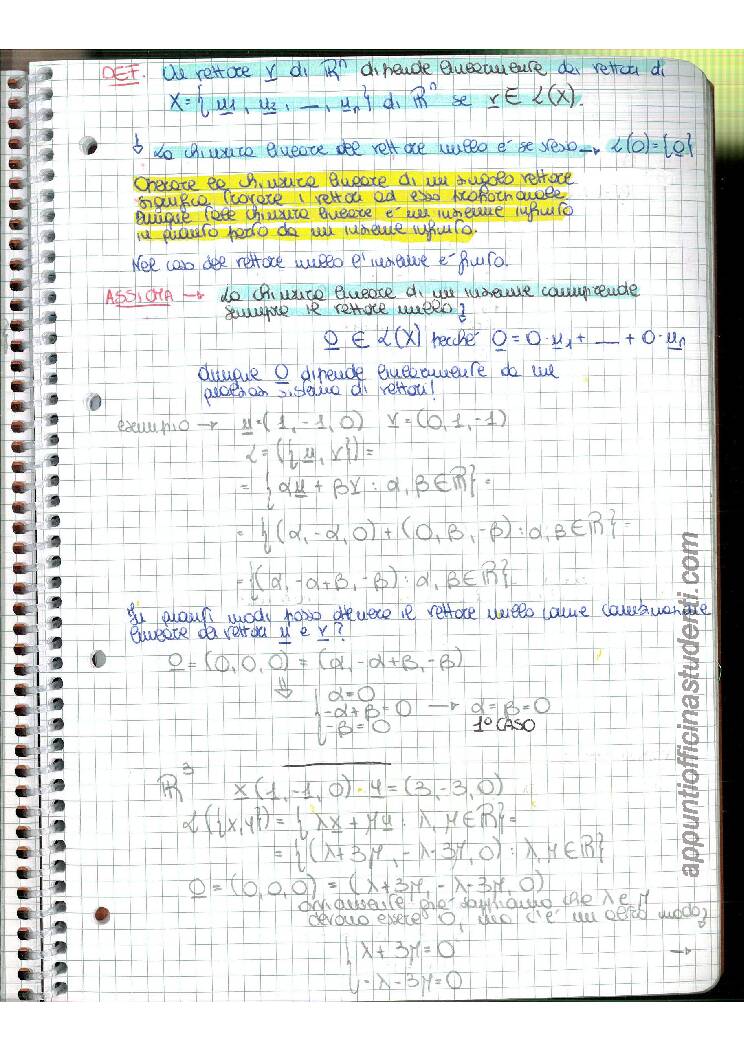 DEF. Un vettore v di ℝⁿ dipende linearmente dai vettori di
X = { u1, u2, —, un } di ℝⁿ se v ∈ L(X).
↓ La chiusura lineare del vettore nullo è se stesso → L(0) = {0}
Operare la chiusura lineare di un singolo vettore
significa trovare i vettori ad esso proporzionale.
Dunque tale chiusura lineare è un insieme infinito
in quanto parto da un insieme infinito.
Nel caso del vettore nullo l'insieme è finito.
ASSIOMA → La chiusura lineare di un insieme comprende
sempre il vettore nullo?
0 ∈ L(X) perché 0 = 0·u1 + — + 0·un
dunque 0 dipende linearmente da un
qualsiasi sistema di vettori!
esempio → u=(1, -1, 0) v=(0, 1, -1)
L = ({u, v}) =
= { αu + βv : α, β ∈ ℝ } =
= { (α, -α, 0) + (0, β, -β) : α, β ∈ ℝ } =
= {(α, -α+β, -β) : α, β ∈ ℝ}
In quanti modi posso ottenere il vettore nullo come combinazione
lineare dei vettori u e v?
0 = (0, 0, 0) = (α, -α+β, -β)
⇓ { α = 0
-α+β = 0 → α = β = 0
-β = 0 1° CASO
ℝ³ x(1, -1, 0) · y = (3, -3, 0)
L({x, y}) = { λx + μy : λ, μ ∈ ℝ } =
= {(λ+3μ, -λ-3μ, 0) : λ, μ ∈ ℝ}
0 = (0, 0, 0) = (λ+3μ, -λ-3μ, 0)
ovviamente già sappiamo che λ e μ
devono essere 0, ma c'è un altro modo?
{ λ+3μ = 0 →
-λ-3μ = 0
appuntiofficinastudenti.com